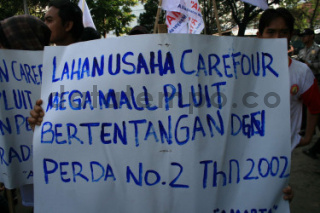 LAHAN USAHA CAREFOUR
MEGA MALL PLUIT
BERTENTANGAN DGN
PERDA NO.2 THN 2002
N CAREF
PLUIT